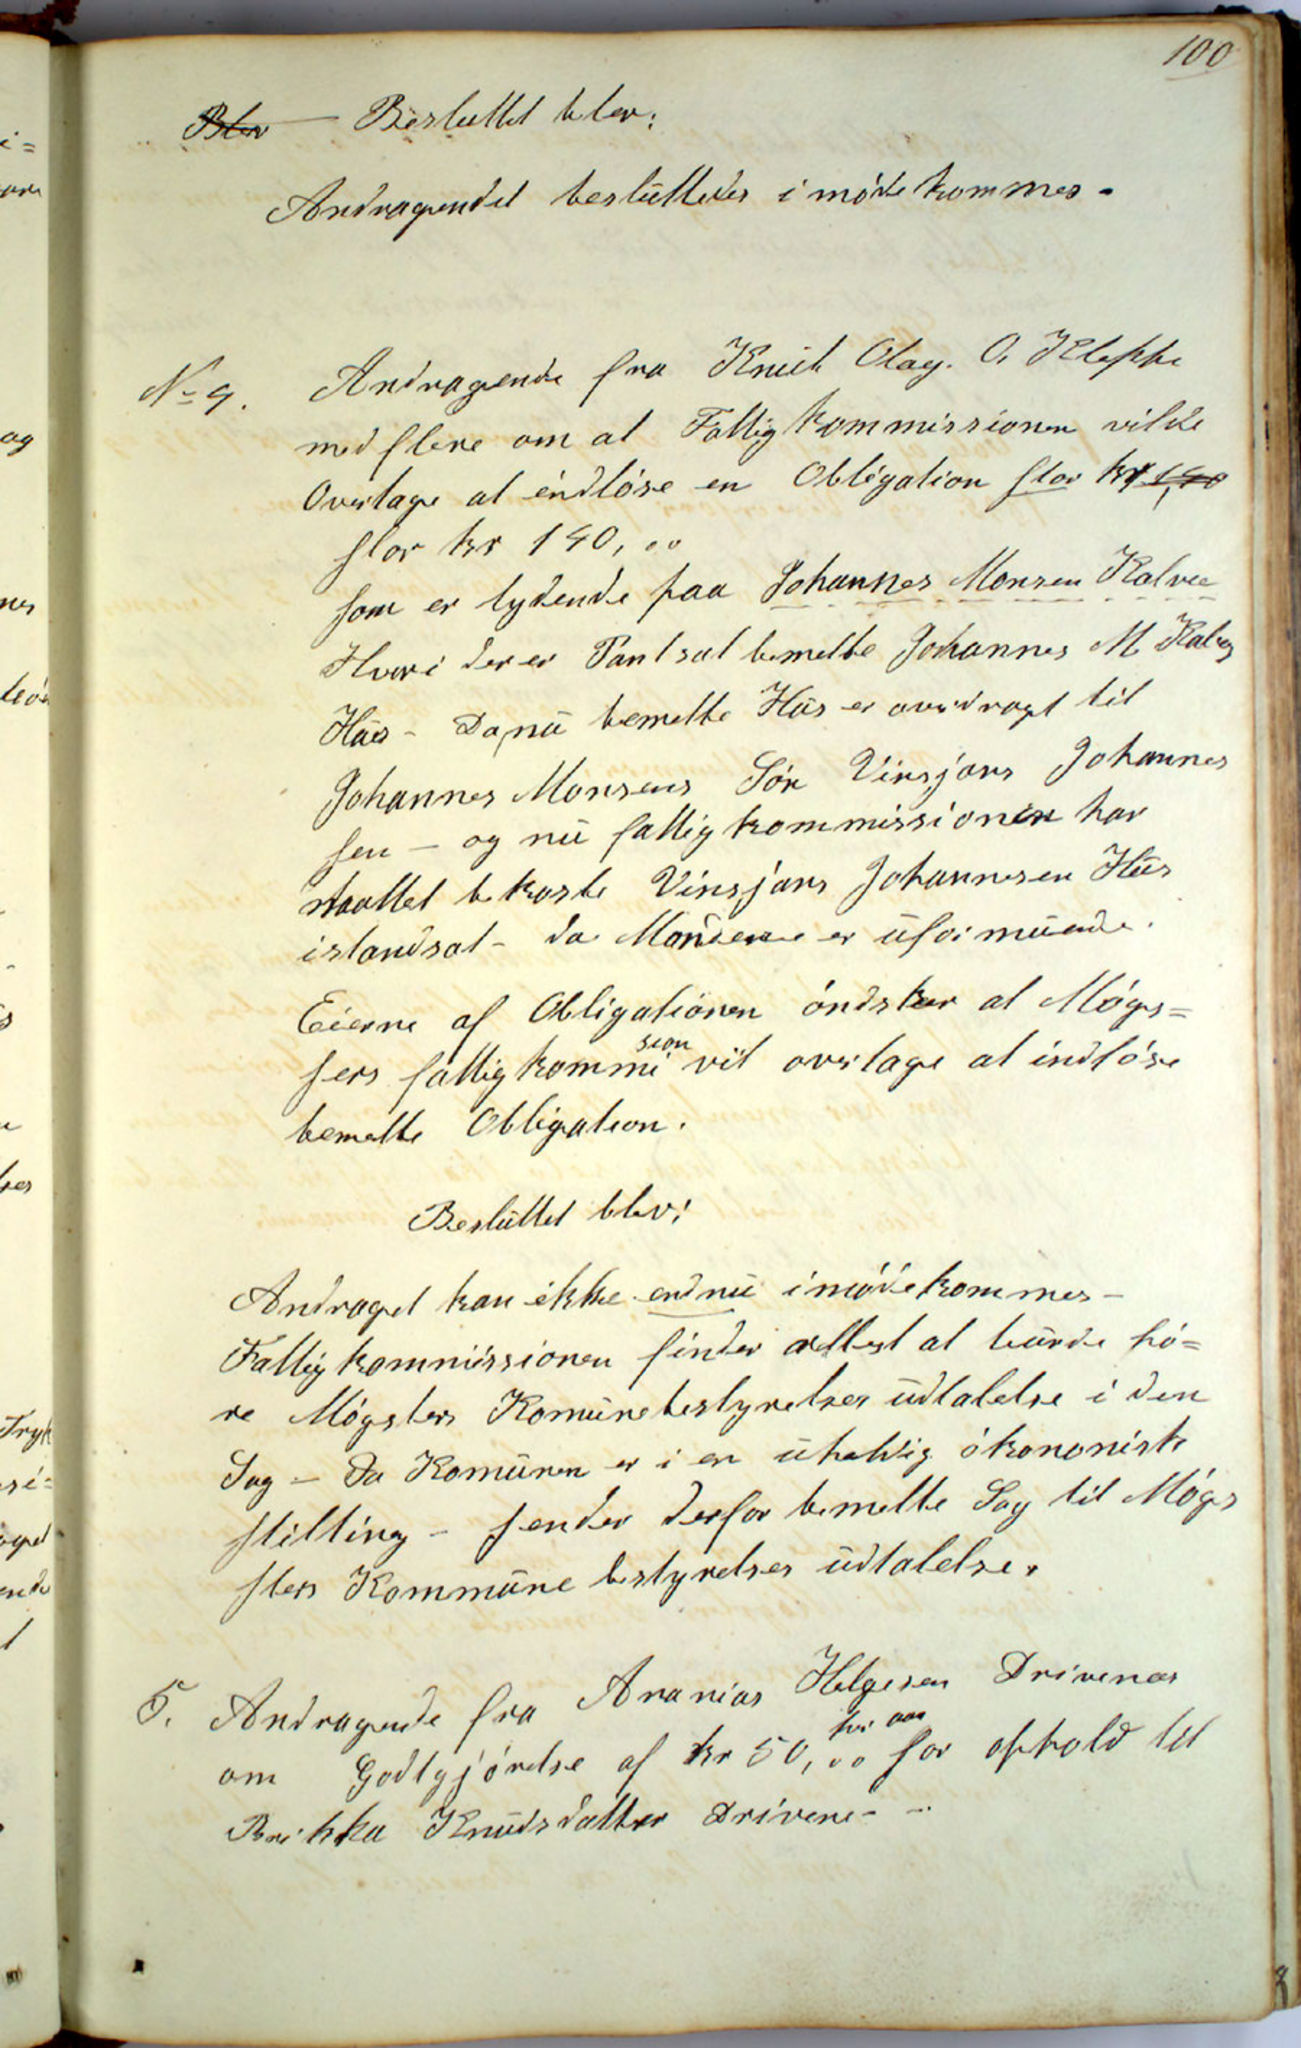 100
Blev Besluttet blev:
Andragendet besluttedes imødekommes -
No 4. Andragende fra Knut Olag. O. Kleppe
med flere om at Fattigkommissionen vilde
Overtage at indløse en Obligation stor kr 140
stor kr 140,00
som er lydende paa Johannes Monsen Kalve
Hvori der er Pantsat bemelte Johannes M Kalves
Hus - Da nu bemelte Hus er overdragt til
Johannes Monsens Søn Vinsjans Johannes
sen - og nu fattigkommissionen har
maattet bekoste Vinsjans Johannesen Hus
istandsat - da Mondene er uformuende.
Eierne af Obligationen øndsker at Møgs=
ters fattigkommision vil overtage at indløse
bemelte Obligation.
Besluttet blev:
Andraget kan ikke endnu imødekommes -
Fattigkommissionen finder aller at burde hø=
re Møgsters Komunebestyrelses udtalelse i den
Sag - Da Komunen er i en uheldig økonomisk
stilling - sender derfor bemelte Sag til Møgs
ters Kommune bestyrelses udtalelse.
5. Andragende fra Ananias Helgesen Drivenes
om Godtgjørelse af kr 50,00 for aar for ophold til
Brikka Knudsdatter Drivene - -
i=
og
nes
Tryk
si=
ende